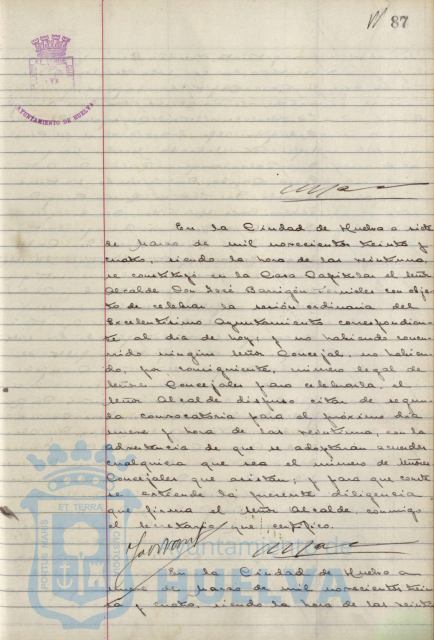 87
AYUNTAMIENTO DE HUELVA
En la Ciudad de Huelva a siete
de Marzo de mil novecientos treinta y
cuatro, siendo la hora de las veintiuna,
se constituyó en la Casa Capitular el Señor
Alcalde Don José Barrigón con objeto
de celebrar la sesión ordinaria del
Excelentísimo Ayuntamiento correspondien-
te al dia de hoy, y no habiendo concu-
rrido ningún Señor Concejal, no habien-
do, por consiguiente, número legal de
Señores Concejales para celebrarla, el
Señor Alcalde dispuso citar de segun-
da convocatoria para el próximo dia
nueve y hora de las veintiuna, con la
advertencia de que se adoptarán acuerdos
cualquiera que sea el número de Señores
Concejales que asistan; y para que conste
se extiende la presente diligencia
que firma el Señor Alcalde, conmigo
el Secretario que certifico.
Ayuntamiento de
HUELVA
PORTUS MARIS
ET TERRAE
CUSTODIA
En la Ciudad de Huelva a
nueve de Marzo de mil novecientos trein-
ta y cuatro, siendo la hora de las veinti